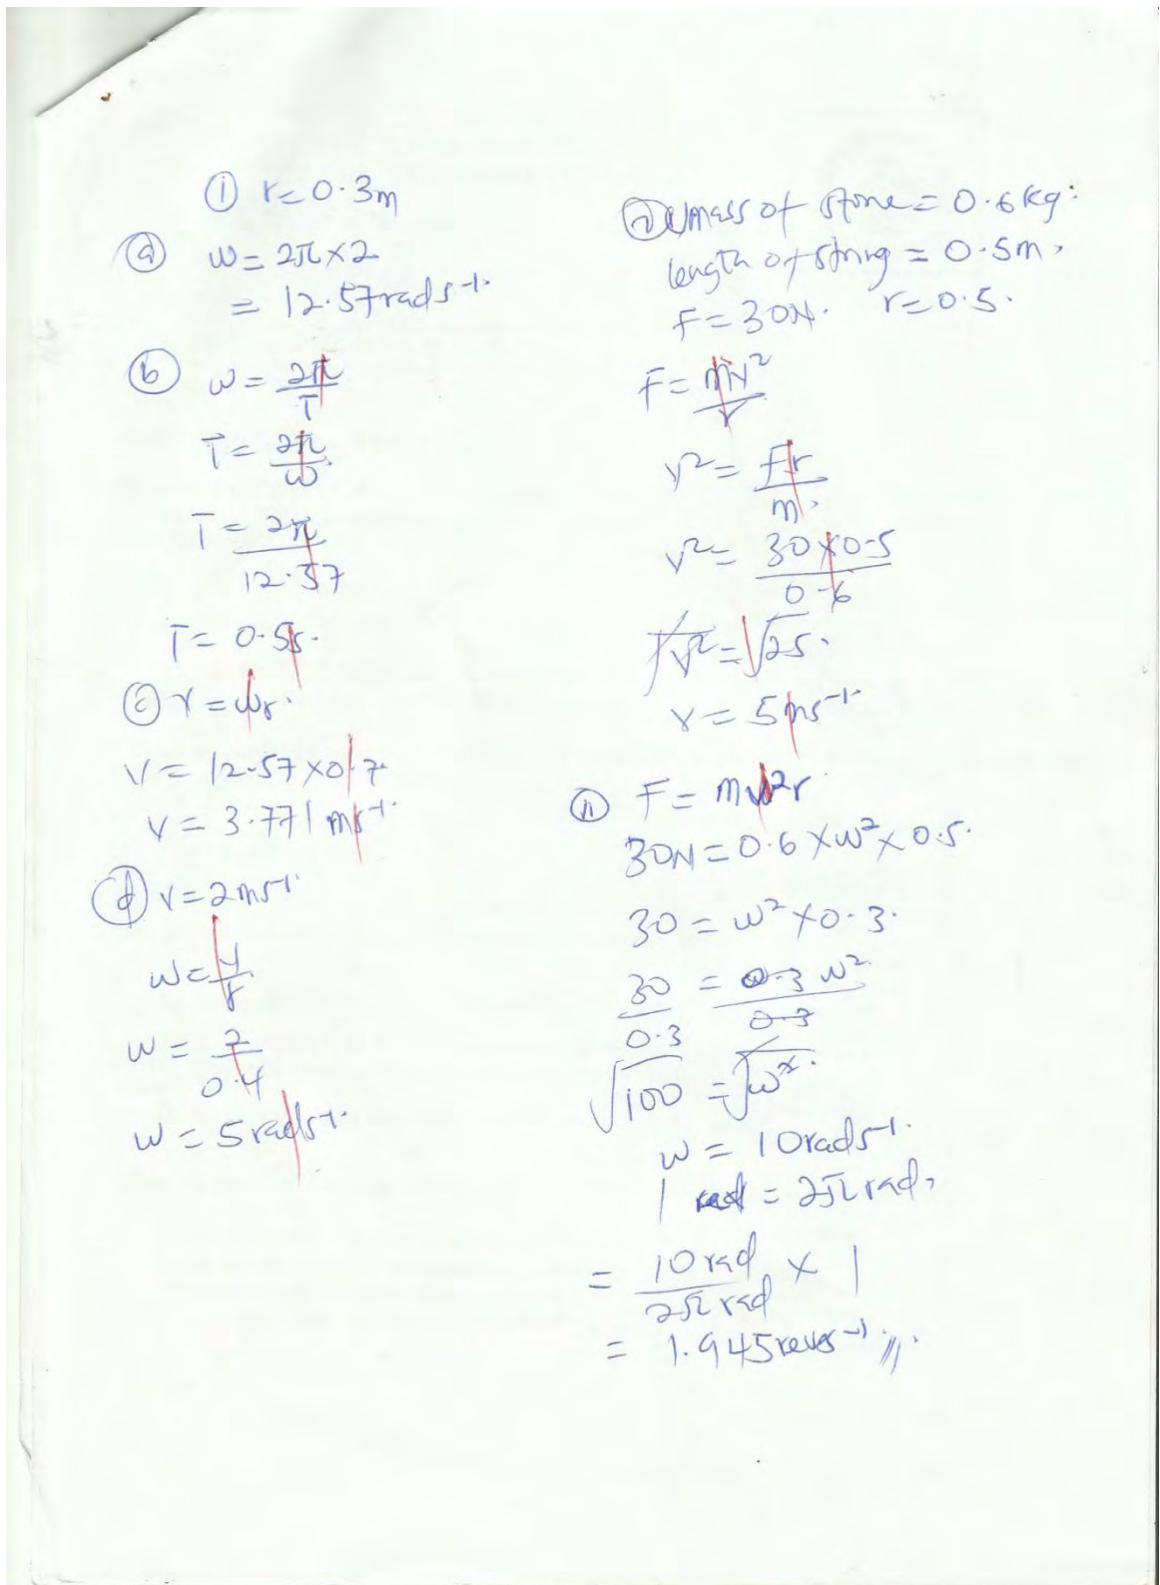 ① r=0.3m
ⓐ ω=2π×2
= 12.57rads-1.
ⓑ ω = 2π/T
T= 2π/ω
T = 2π/12.57
T= 0.5s.
ⓒ v=ωr.
V= 12.57×0.7
V= 3.771ms-1.
ⓓ v=2ms-1
ω=v/r
ω = 2/0.4
ω = 5rads-1.
mass of stone = 0.6kg.
length of string = 0.5m,
F=30N. r=0.5.
F= mv²/r
v²= Fr/m.
v²= 30×0.5/0.6
√v²=√25.
v= 5ms-1
ⓘⓘ F= mω²r
30N=0.6×ω²×0.5.
30 = ω²×0.3.
30/0.3 = 0.3ω²/0.3
√100 =√ω².
ω = 10rads-1.
1 = 2π rad,
= 10rad/2π rad × 1
= 1.945revs-1